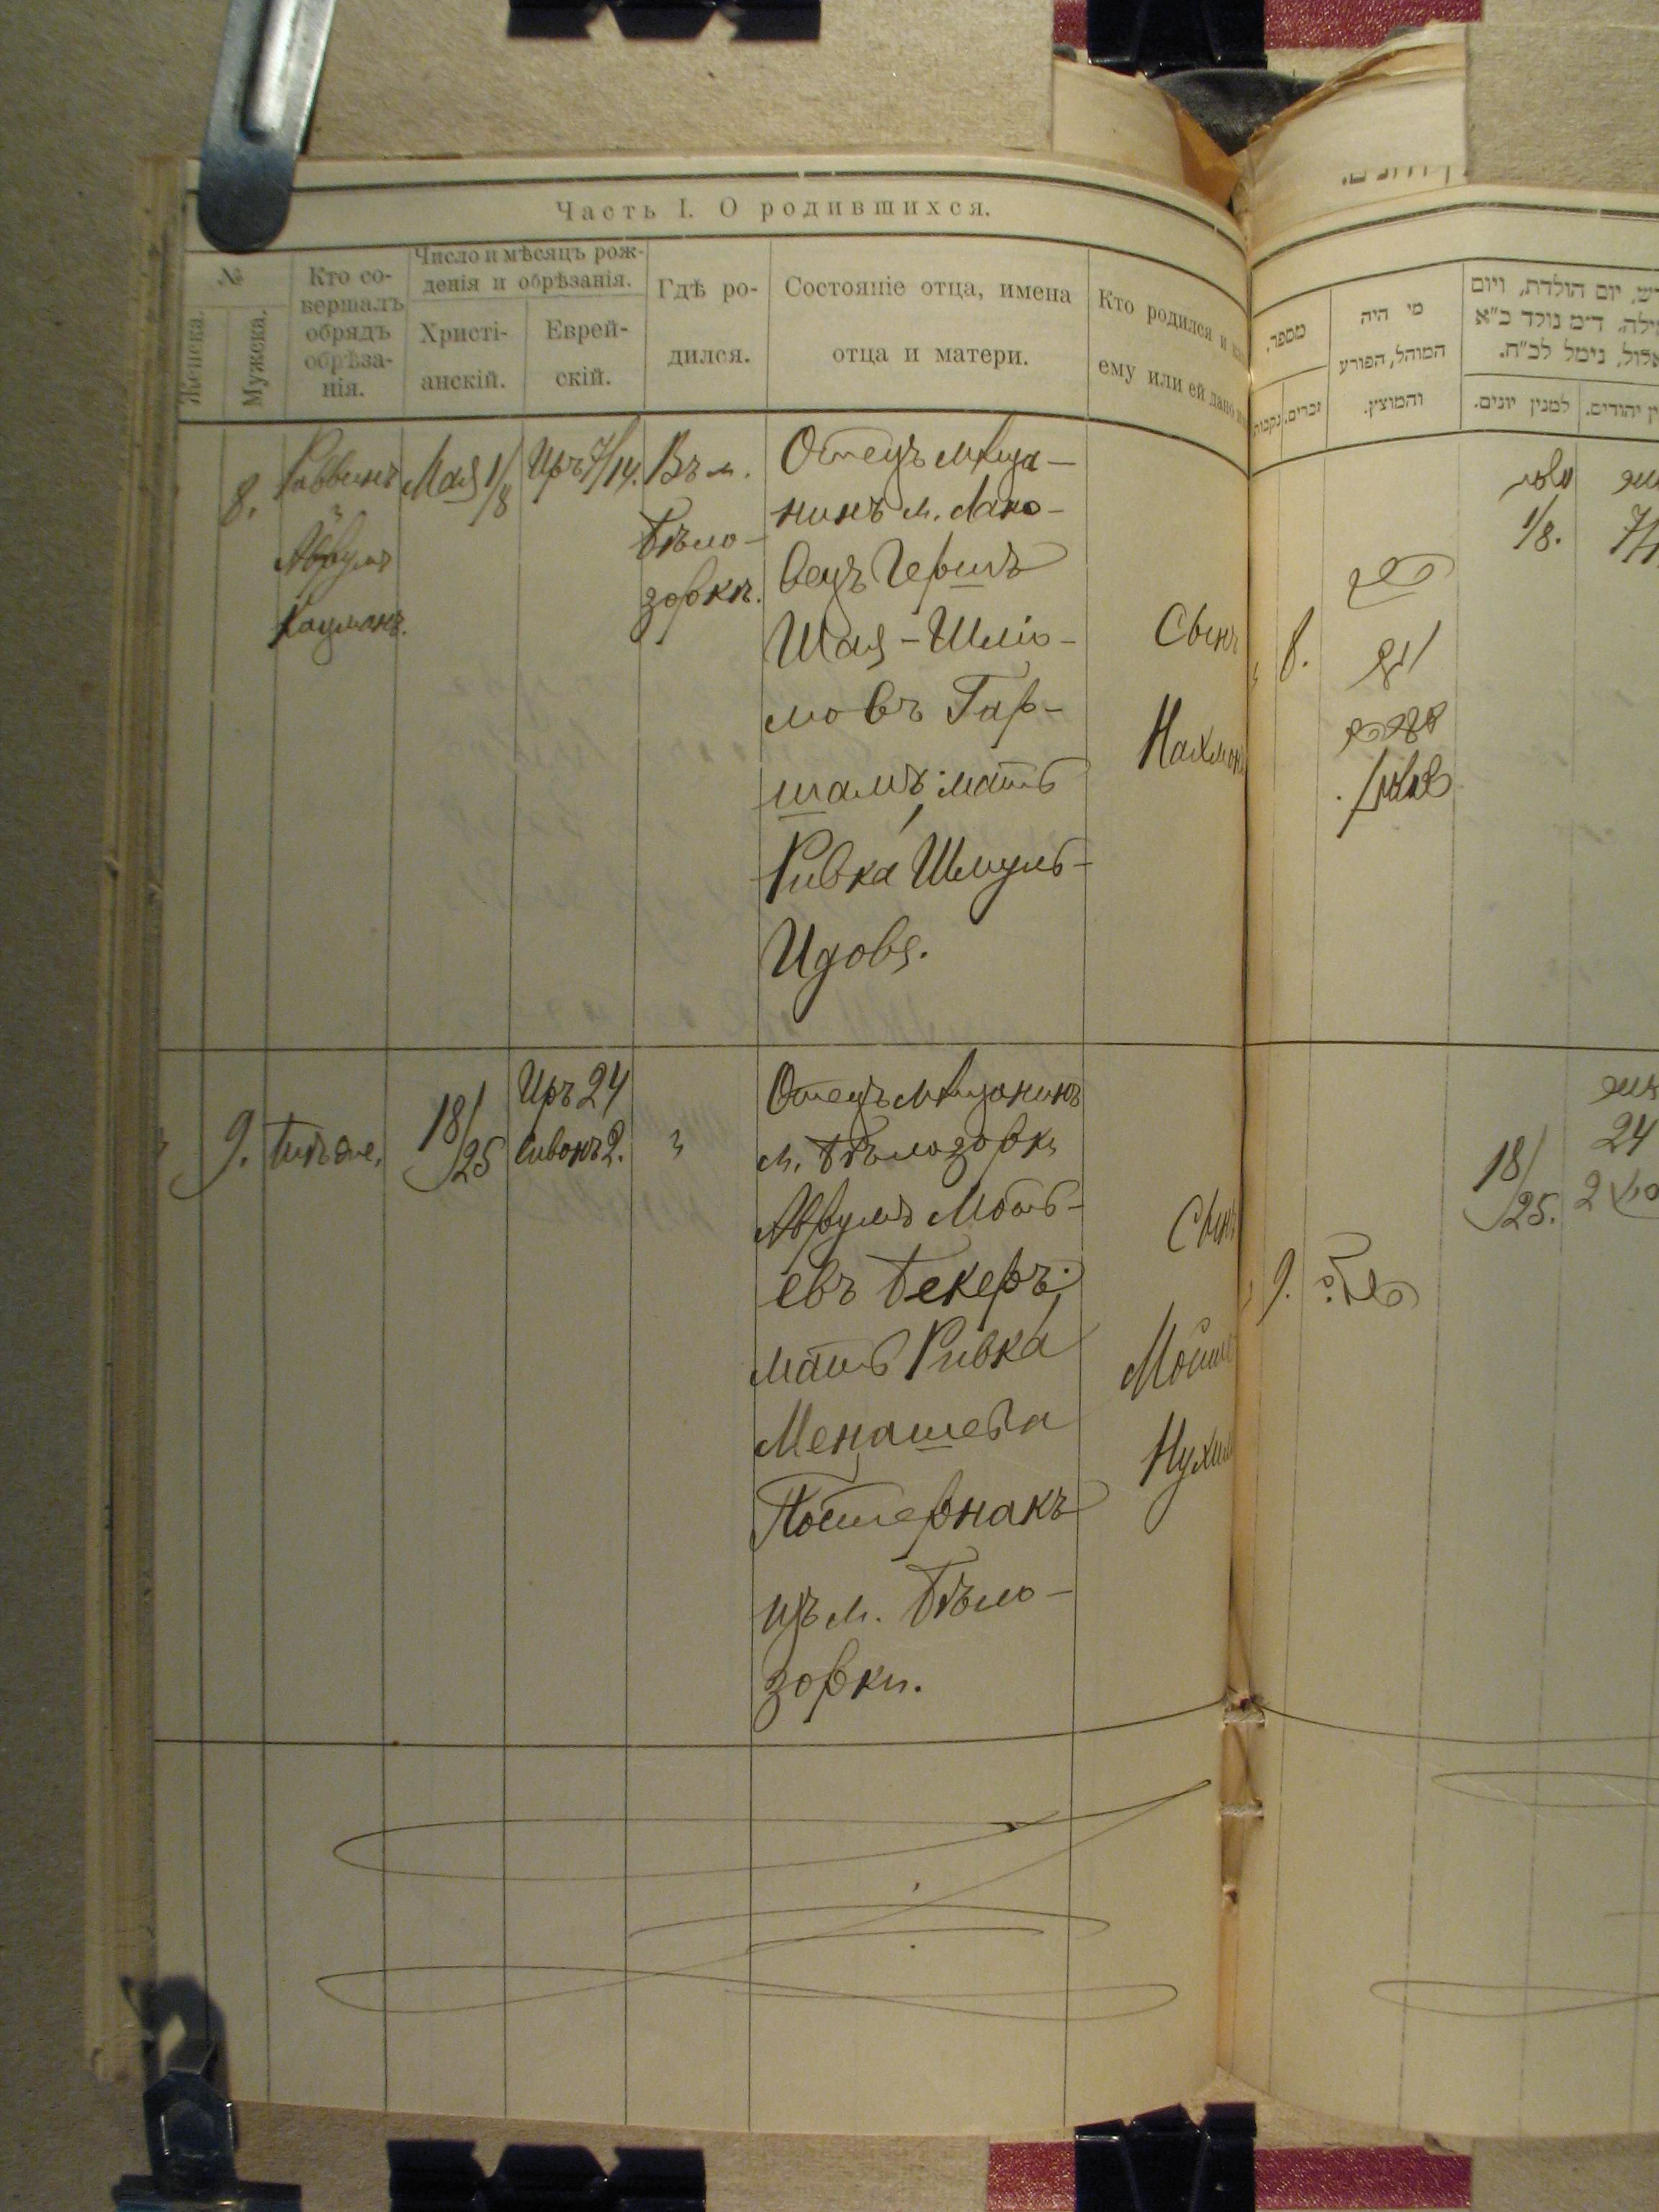 Часть I. О родившихся.
№
Женска.
Мужеска.
Кто со-
вершалъ
обрядъ
обрѣза-
нія.
Число и мѣсяцъ рож-
денія и обрѣзанія.
Христі-
анскій.
Еврей-
скій.
Гдѣ ро-
дился.
Состояніе отца, имена
отца и матери.
Кто родился и
ему или ей дано
8.
Раввинъ
Аврумъ
Мая 1/8
Иръ 7/14.
Въ м.
Бѣло-
зоркѣ.
Отецъ мѣща-
нинъ м. Лано-
вецъ Гершъ
Шая-Шлио-
мовъ Гар-
шамъ; мать
Ривка Шмуль-
Идова.
Сынъ
Нахманъ
9.
18/25
Иръ 24
Сиванъ 2.
Отецъ мѣщанинъ
м. Бѣлозорки
Аврумъ Моть-
евъ Бекеръ;
мать Ривка
Менашева
Постернакъ
изъ м. Бѣло-
зорки.
Сынъ
Мойше
Нухим
מספר.
נקבות
זכרים.
מי היה
המוהל, הפורע
והמוצץ.
יום הולדת, ויום
ד״מ נולד כ״א
אלול, נימל לכ״ח.
למנין יונים.
יהודים.
8.
הרב
ר׳
אברהם
1/8.
9.
18/25.
24
2